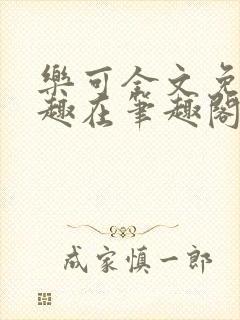 樂可全文免
趣在筆趣閣
成家慎一郎